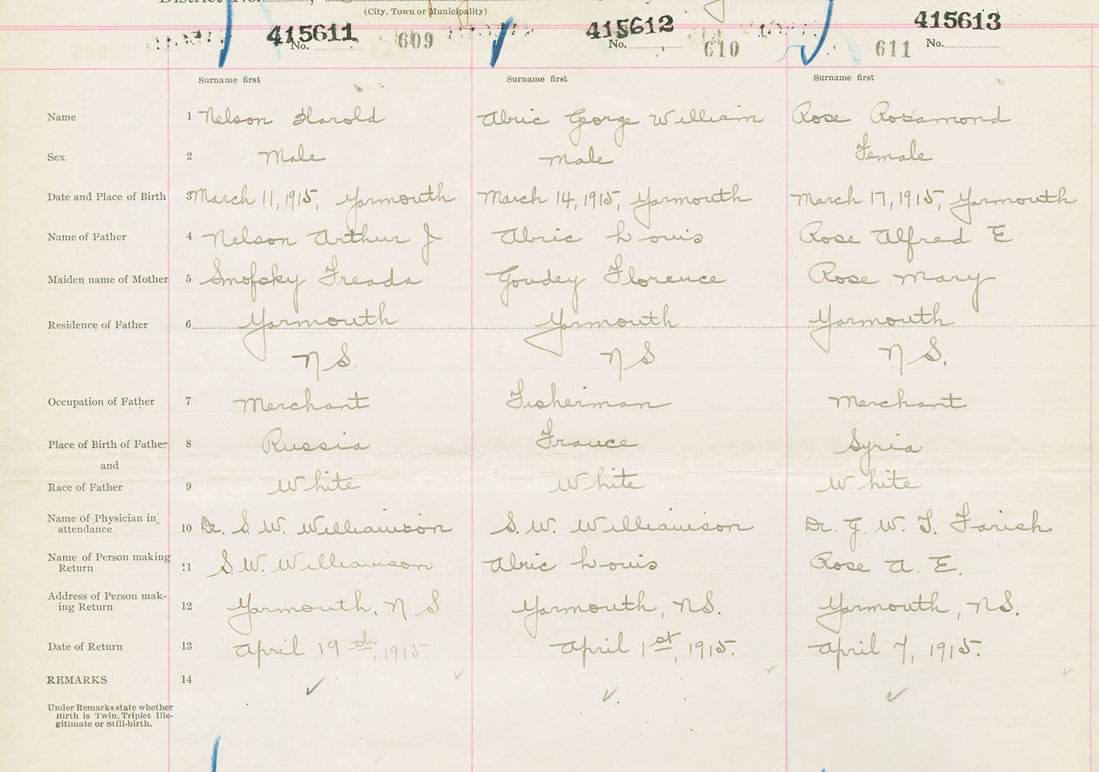 (City, Town or Municipality)
415611 No. 609 415612 No. 610 415613 No. 611
Surname first Surname first Surname first
Name 1 Nelson Harold Abric George William Rose Rosamond
Sex 2 Male Male Female
Date and Place of Birth 3 March 11, 1915, Yarmouth March 14, 1915, Yarmouth March 17, 1915, Yarmouth
Name of Father 4 Nelson Arthur J Abric Louis Rose Alfred E
Maiden name of Mother 5 Smofsky Freada Goudey Florence Rose Mary
Residence of Father 6 Yarmouth Yarmouth Yarmouth
N S. N S N S.
Occupation of Father 7 Merchant Fisherman Merchant
Place of Birth of Father 8 Russia France Syria
and
Race of Father 9 White White White
Name of Physician in attendance 10 Dr. S. W. Williamson S. W. Williamson Dr. G. W. T. Farish
Name of Person making Return 11 S. W. Williamson Abric Louis Rose A. E.
Address of Person making Return 12 Yarmouth, N S Yarmouth, NS. Yarmouth, NS.
Date of Return 13 April 19th, 1915. April 1st, 1915. April 7, 1915.
REMARKS 14
Under Remarks state whether
Birth is Twin, Triplet Ille-
gitimate or Still-birth.